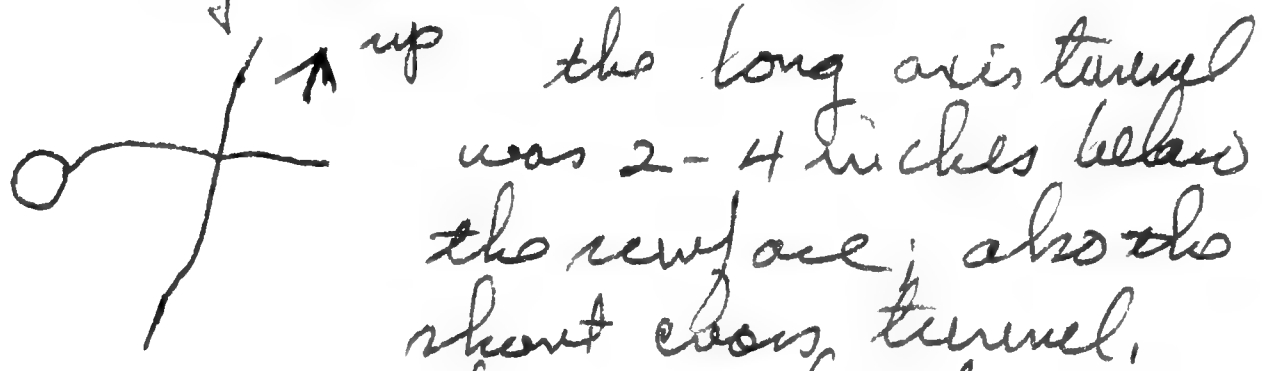 up
the long axis tunnel
was 2-4 inches below
the surface; also the
short cross tunnel.